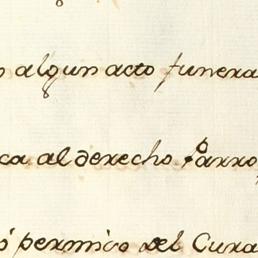 algun acto funera
ca al derecho Parro
permiso del Cura